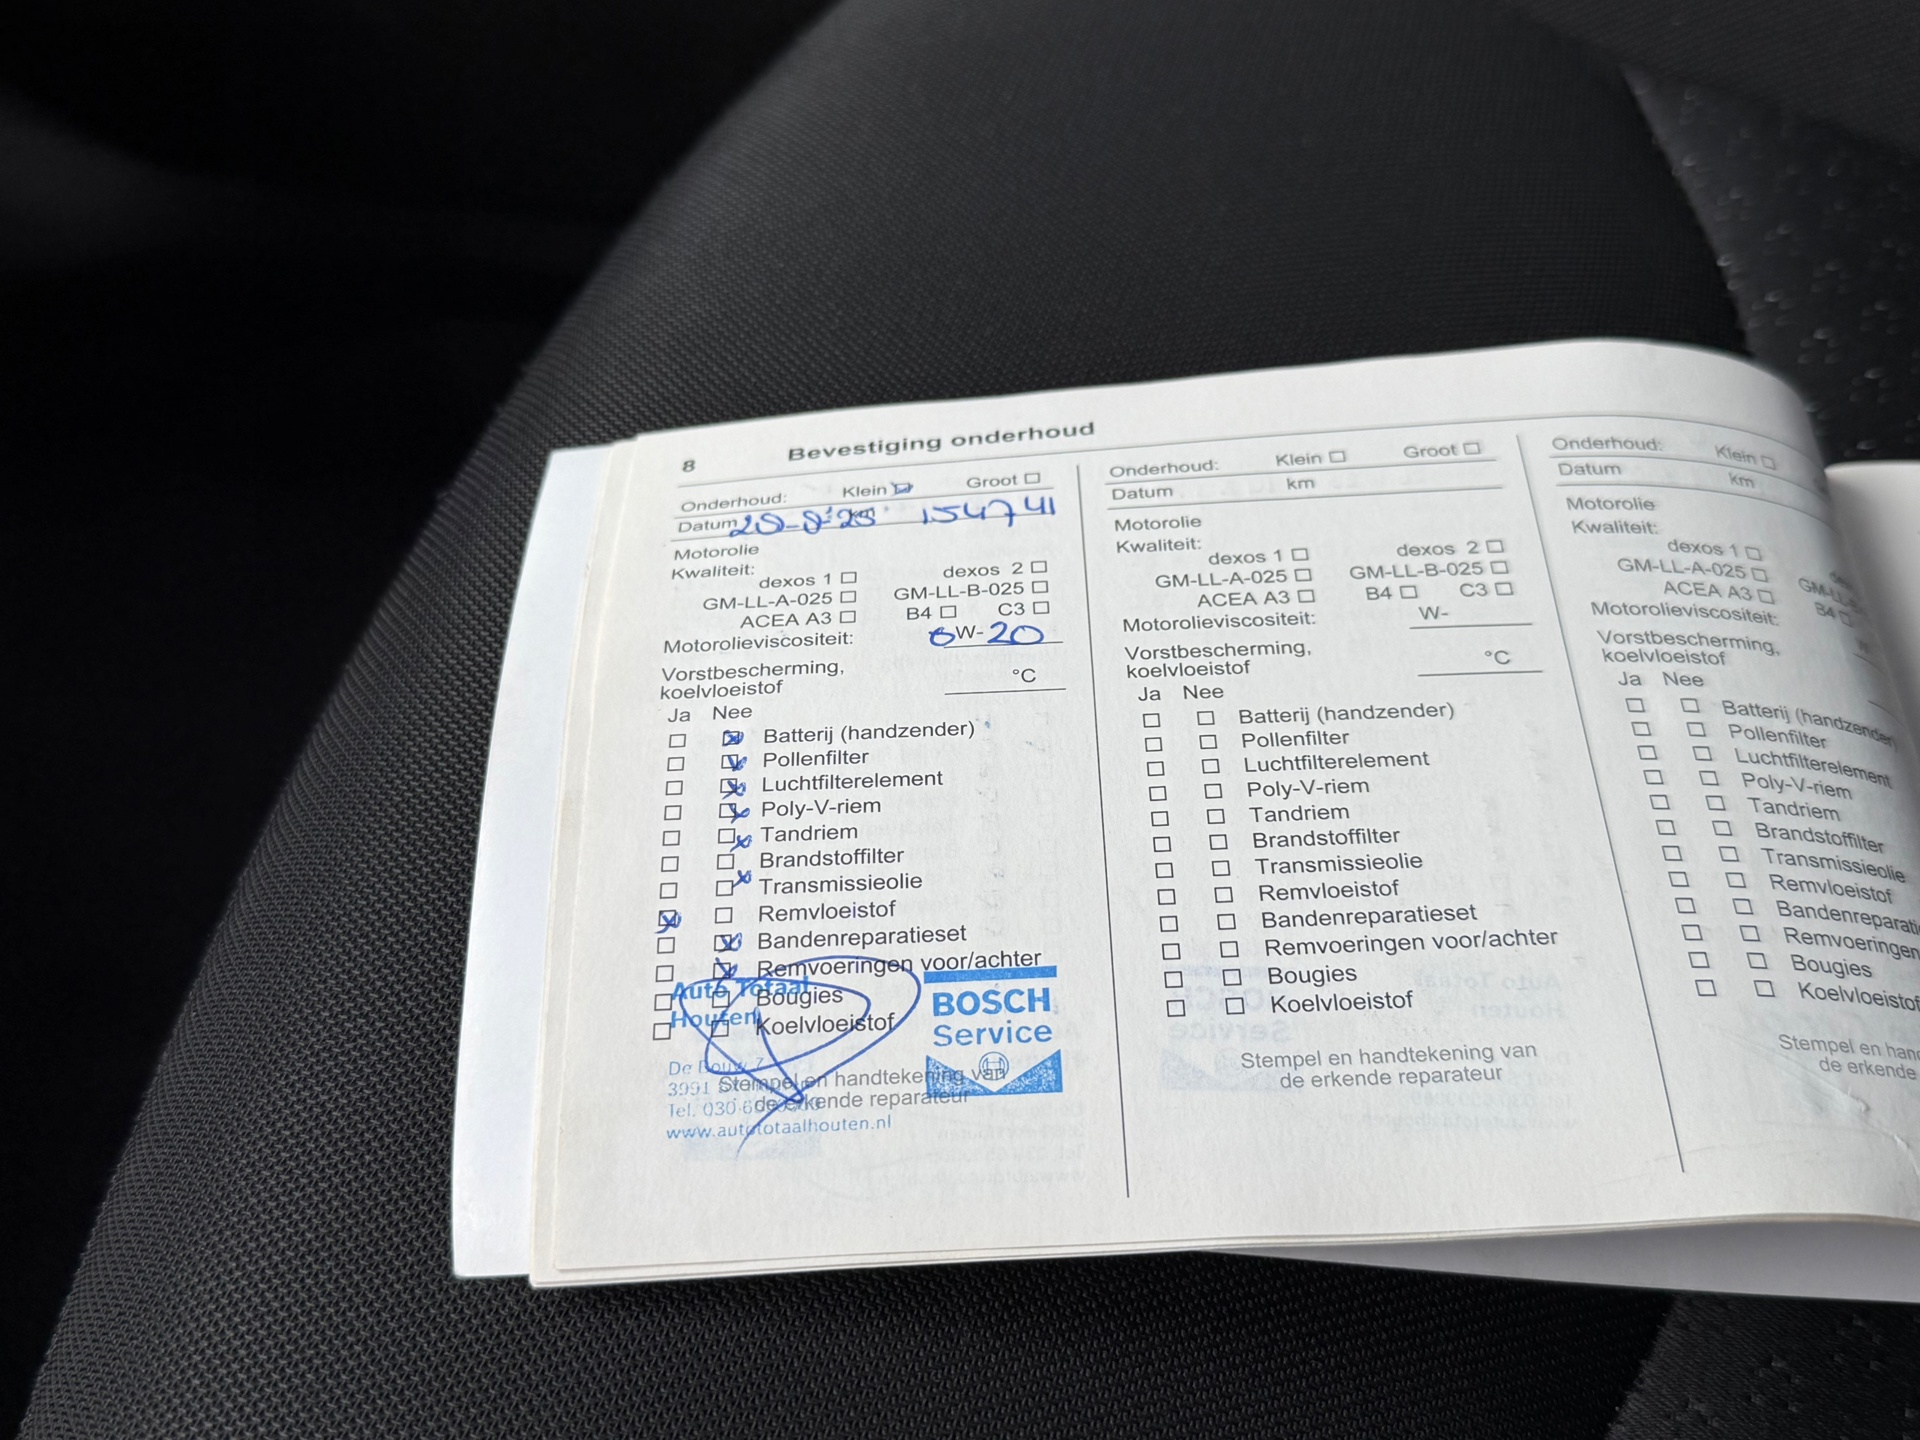 8 Bevestiging onderhoud
Onderhoud: Klein Groot
Datum km 154741
Motorolie
Kwaliteit:
dexos 1 dexos 2
GM-LL-A-025 GM-LL-B-025
ACEA A3 B4 C3
Motorolieviscositeit: 0W-20
Vorstbescherming,
koelvloeistof °C
Ja Nee
Batterij (handzender)
Pollenfilter
Luchtfilterelement
Poly-V-riem
Tandriem
Brandstoffilter
Transmissieolie
Remvloeistof
Bandenreparatieset
Remvoeringen voor/achter
Bougies
Koelvloeistof
Auto Totaal
Houten
BOSCH
Service
De
3991
Tel. 030
www.autototaalhouten.nl
Stempel en handtekening van
de erkende reparateur
Onderhoud: Klein Groot
Datum km
Motorolie
Kwaliteit:
dexos 1 dexos 2
GM-LL-A-025 GM-LL-B-025
ACEA A3 B4 C3
Motorolieviscositeit: W-
Vorstbescherming,
koelvloeistof °C
Ja Nee
Batterij (handzender)
Pollenfilter
Luchtfilterelement
Poly-V-riem
Tandriem
Brandstoffilter
Transmissieolie
Remvloeistof
Bandenreparatieset
Remvoeringen voor/achter
Bougies
Koelvloeistof
Stempel en handtekening van
de erkende reparateur
Onderhoud: Klein
Datum km
Motorolie
Kwaliteit:
dexos 1
GM-LL-A-025
ACEA A3 B4
Motorolieviscositeit:
Vorstbescherming,
koelvloeistof
Ja Nee
Batterij (handzender
Pollenfilter
Luchtfilterelement
Poly-V-riem
Tandriem
Brandstoffilter
Transmissieolie
Remvloeistof
Bandenreparati
Remvoeringen
Bougies
Koelvloeistof
Stempel en hand
de erkende